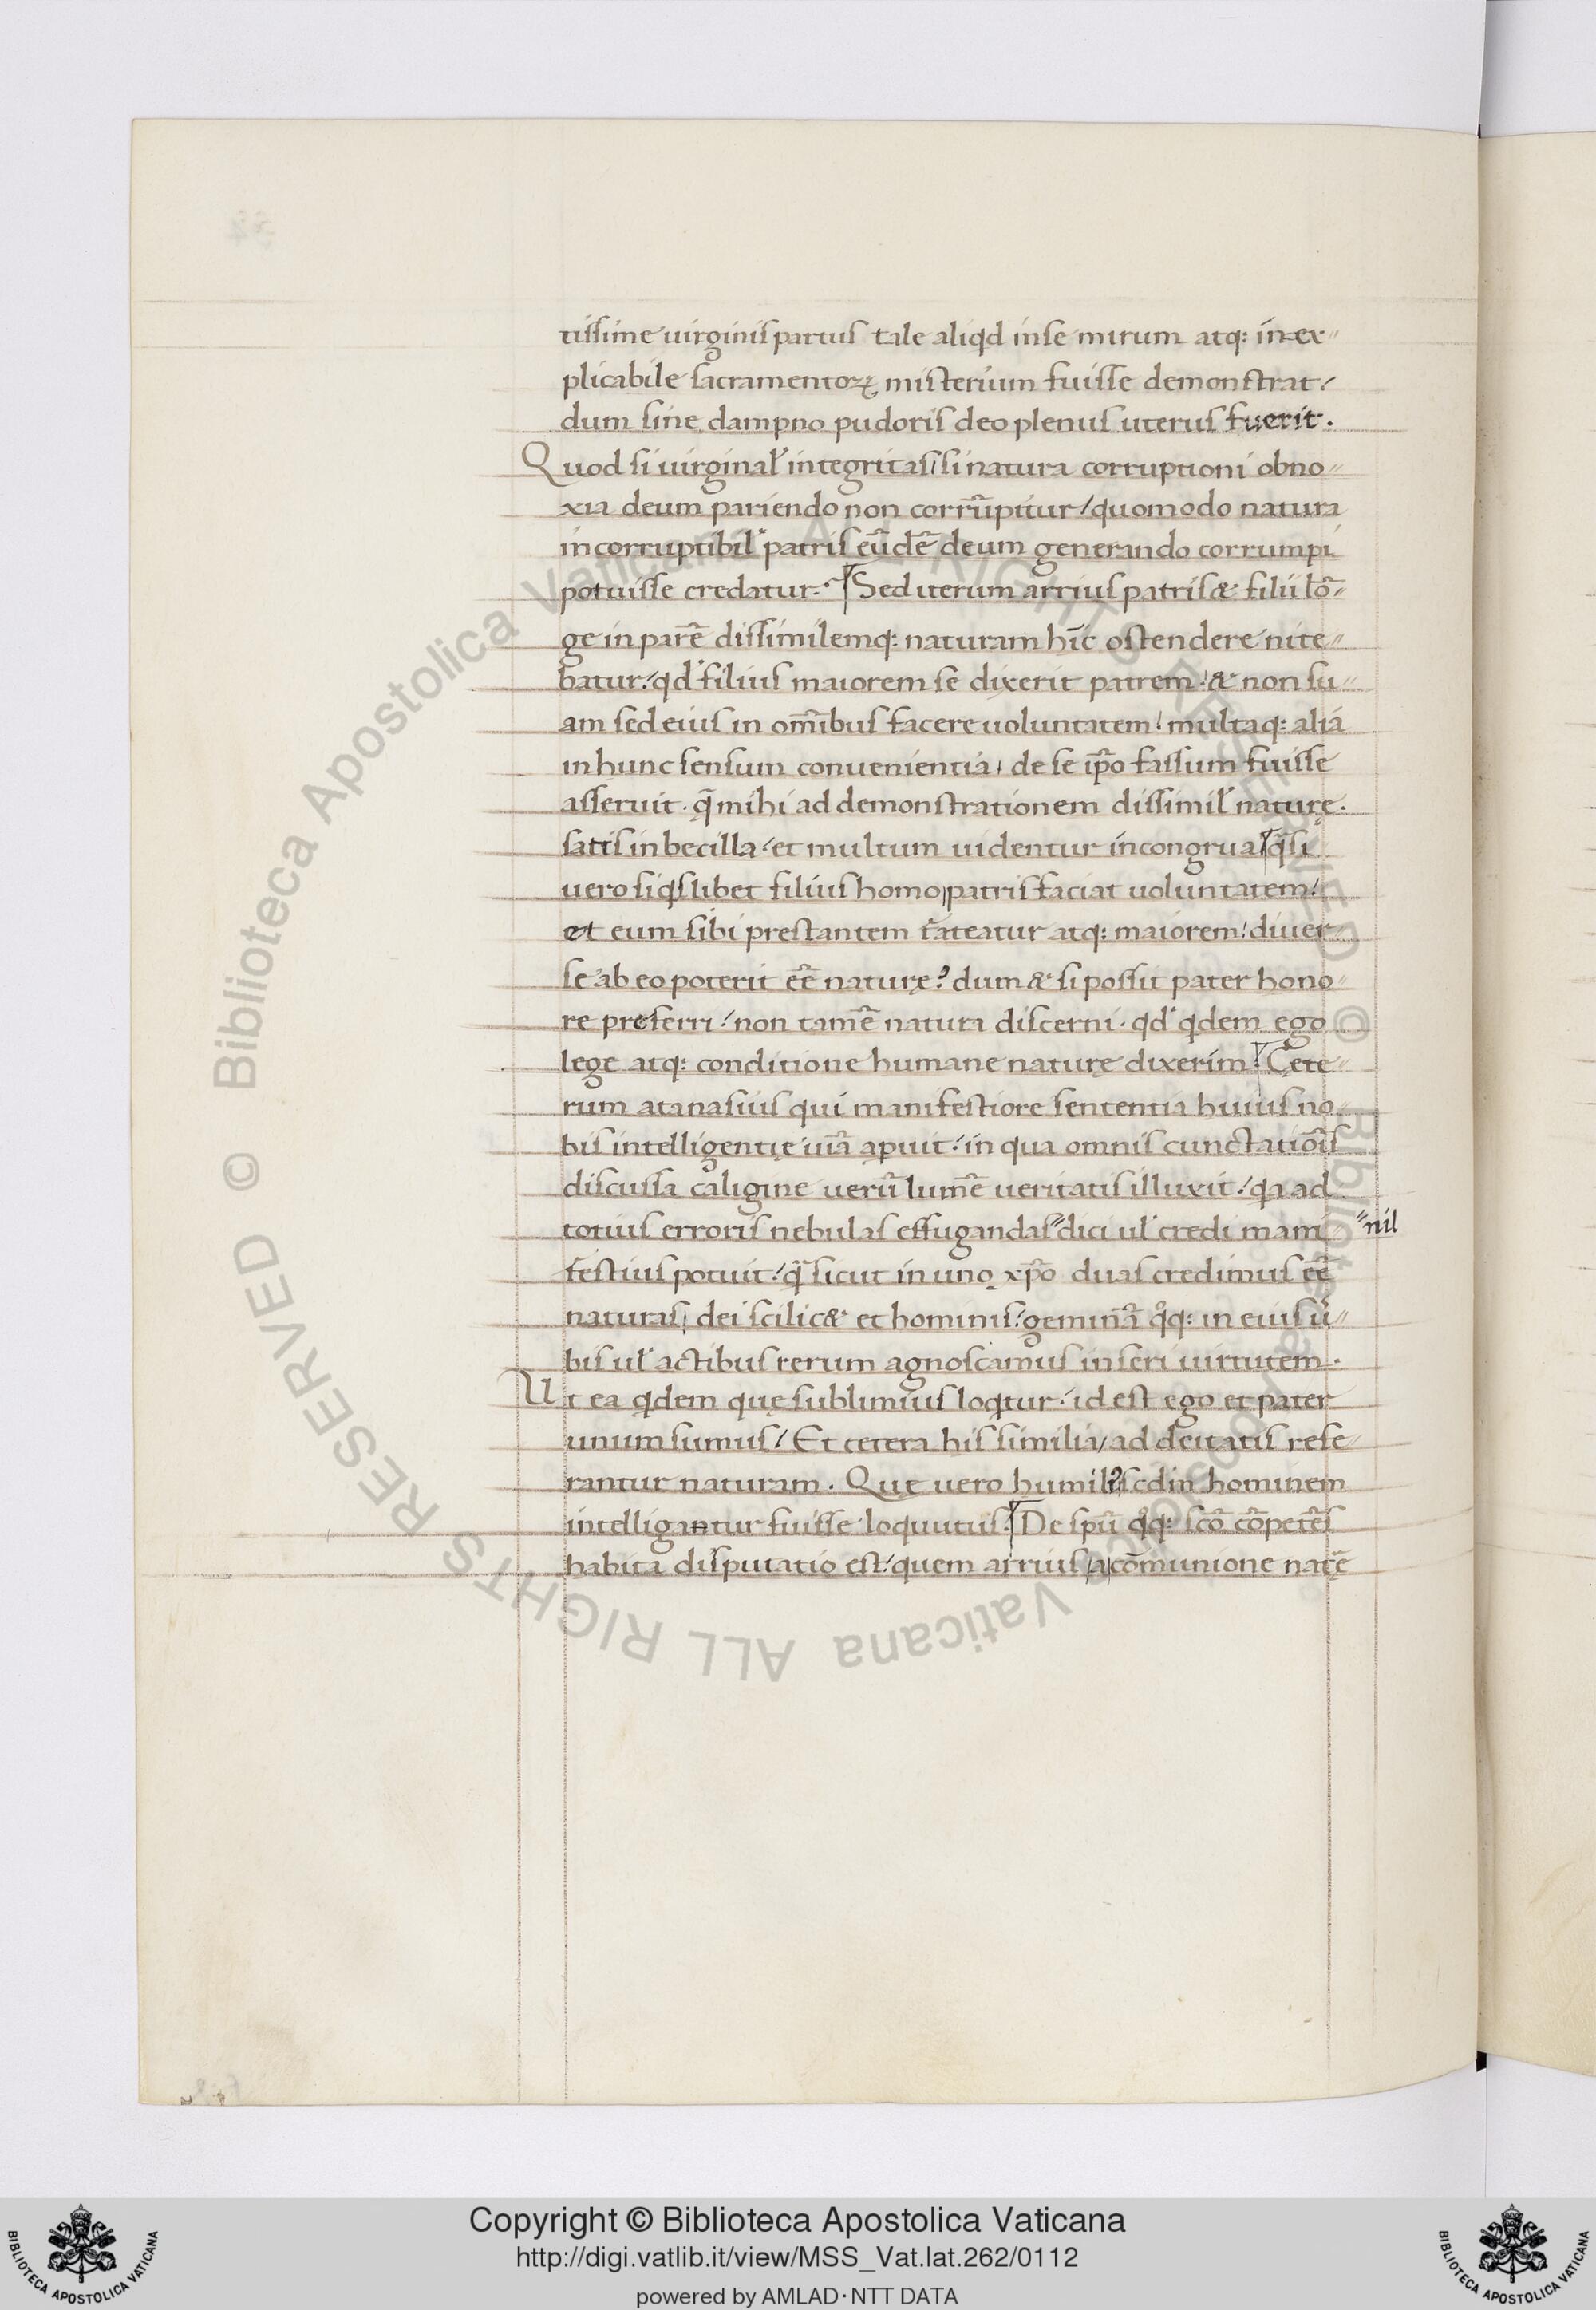 tissime uirginis partus tale aliqd inse mirum atq: inex-
plicabile sacramentoꝝ misterium fuisse demonstrat/
dum sine dampno pudoris deo plenus uterus fuerit.
Quod si uirginal' integritas, si natura corruptioni obno-
xia deum pariendo non corrũpitur/ quomodo natura
incorruptibil' patris eũdẽ deum generando corrumpi
potuisse credatur. Sed iterum arrius patris & filii lõ-
ge inparẽ dissimilemq: naturam hĩc ostendere nite-
batur/ qd' filius maiorem se dixerit patrem/ & non su-
am sed eius in om̃ibus facere uoluntatem/ multaq: alia
in hunc sensum conuenientia, de se ip̃o fassum fuisse
asseruit. q̃ mihi ad demonstrationem dissimil' naturę.
satis inbecilla/ et multum uidentur incongrua q̃si
uero siqslibet filius homo patris faciat uoluntatem/
et eum sibi prestantem fateatur atq: maiorem/ diuer-
se ab eo poterit eẽ naturę? dum & si possit pater hono-
re preferri/ non tam̃e natura discerni. qd' qdem ego
lege atq: conditione humane naturę dixerim. Cete-
rum atanasius qui manifestiore sententia huius no-
bis intelligentię uiã apuit/ in qua omnis cunctatiõis
discussa caligine uerũ lum̃e ueritatis illuxit/ qa ad
totius erroris nebulas effugandas" dici ul' credi mani- "nil
festius potuit/ q̃ sicut in uno xp̃o duas credimus eẽ
naturas, dei scilic& et hominis/ geminã qq: in eius ũ-
bis ul' actibus rerum agnoscamus inseri uirtutem.
Ut ea qdem quę sublimius loqtur/ id est ego et pater
unum sumus/ Et cetera his similia, ad deitatis refe-
rantur naturam. Quę uero humili? sed in hominem
intelligantur fuisse loquutus. De spũ qq: scõ cõpetẽs
habita disputatio est/ quem arrius a cõmunione natẽ
Copyright © Biblioteca Apostolica Vaticana
http://digi.vatlib.it/view/MSS_Vat.lat.262/0112
powered by AMLAD·NTT DATA
BIBLIOTECA APOSTOLICA VATICANA
BIBLIOTECA APOSTOLICA VATICANA
© Biblioteca Apostolica Vaticana ALL RIGHTS RESERVED
© Biblioteca Apostolica Vaticana ALL RIGHTS RESERVED